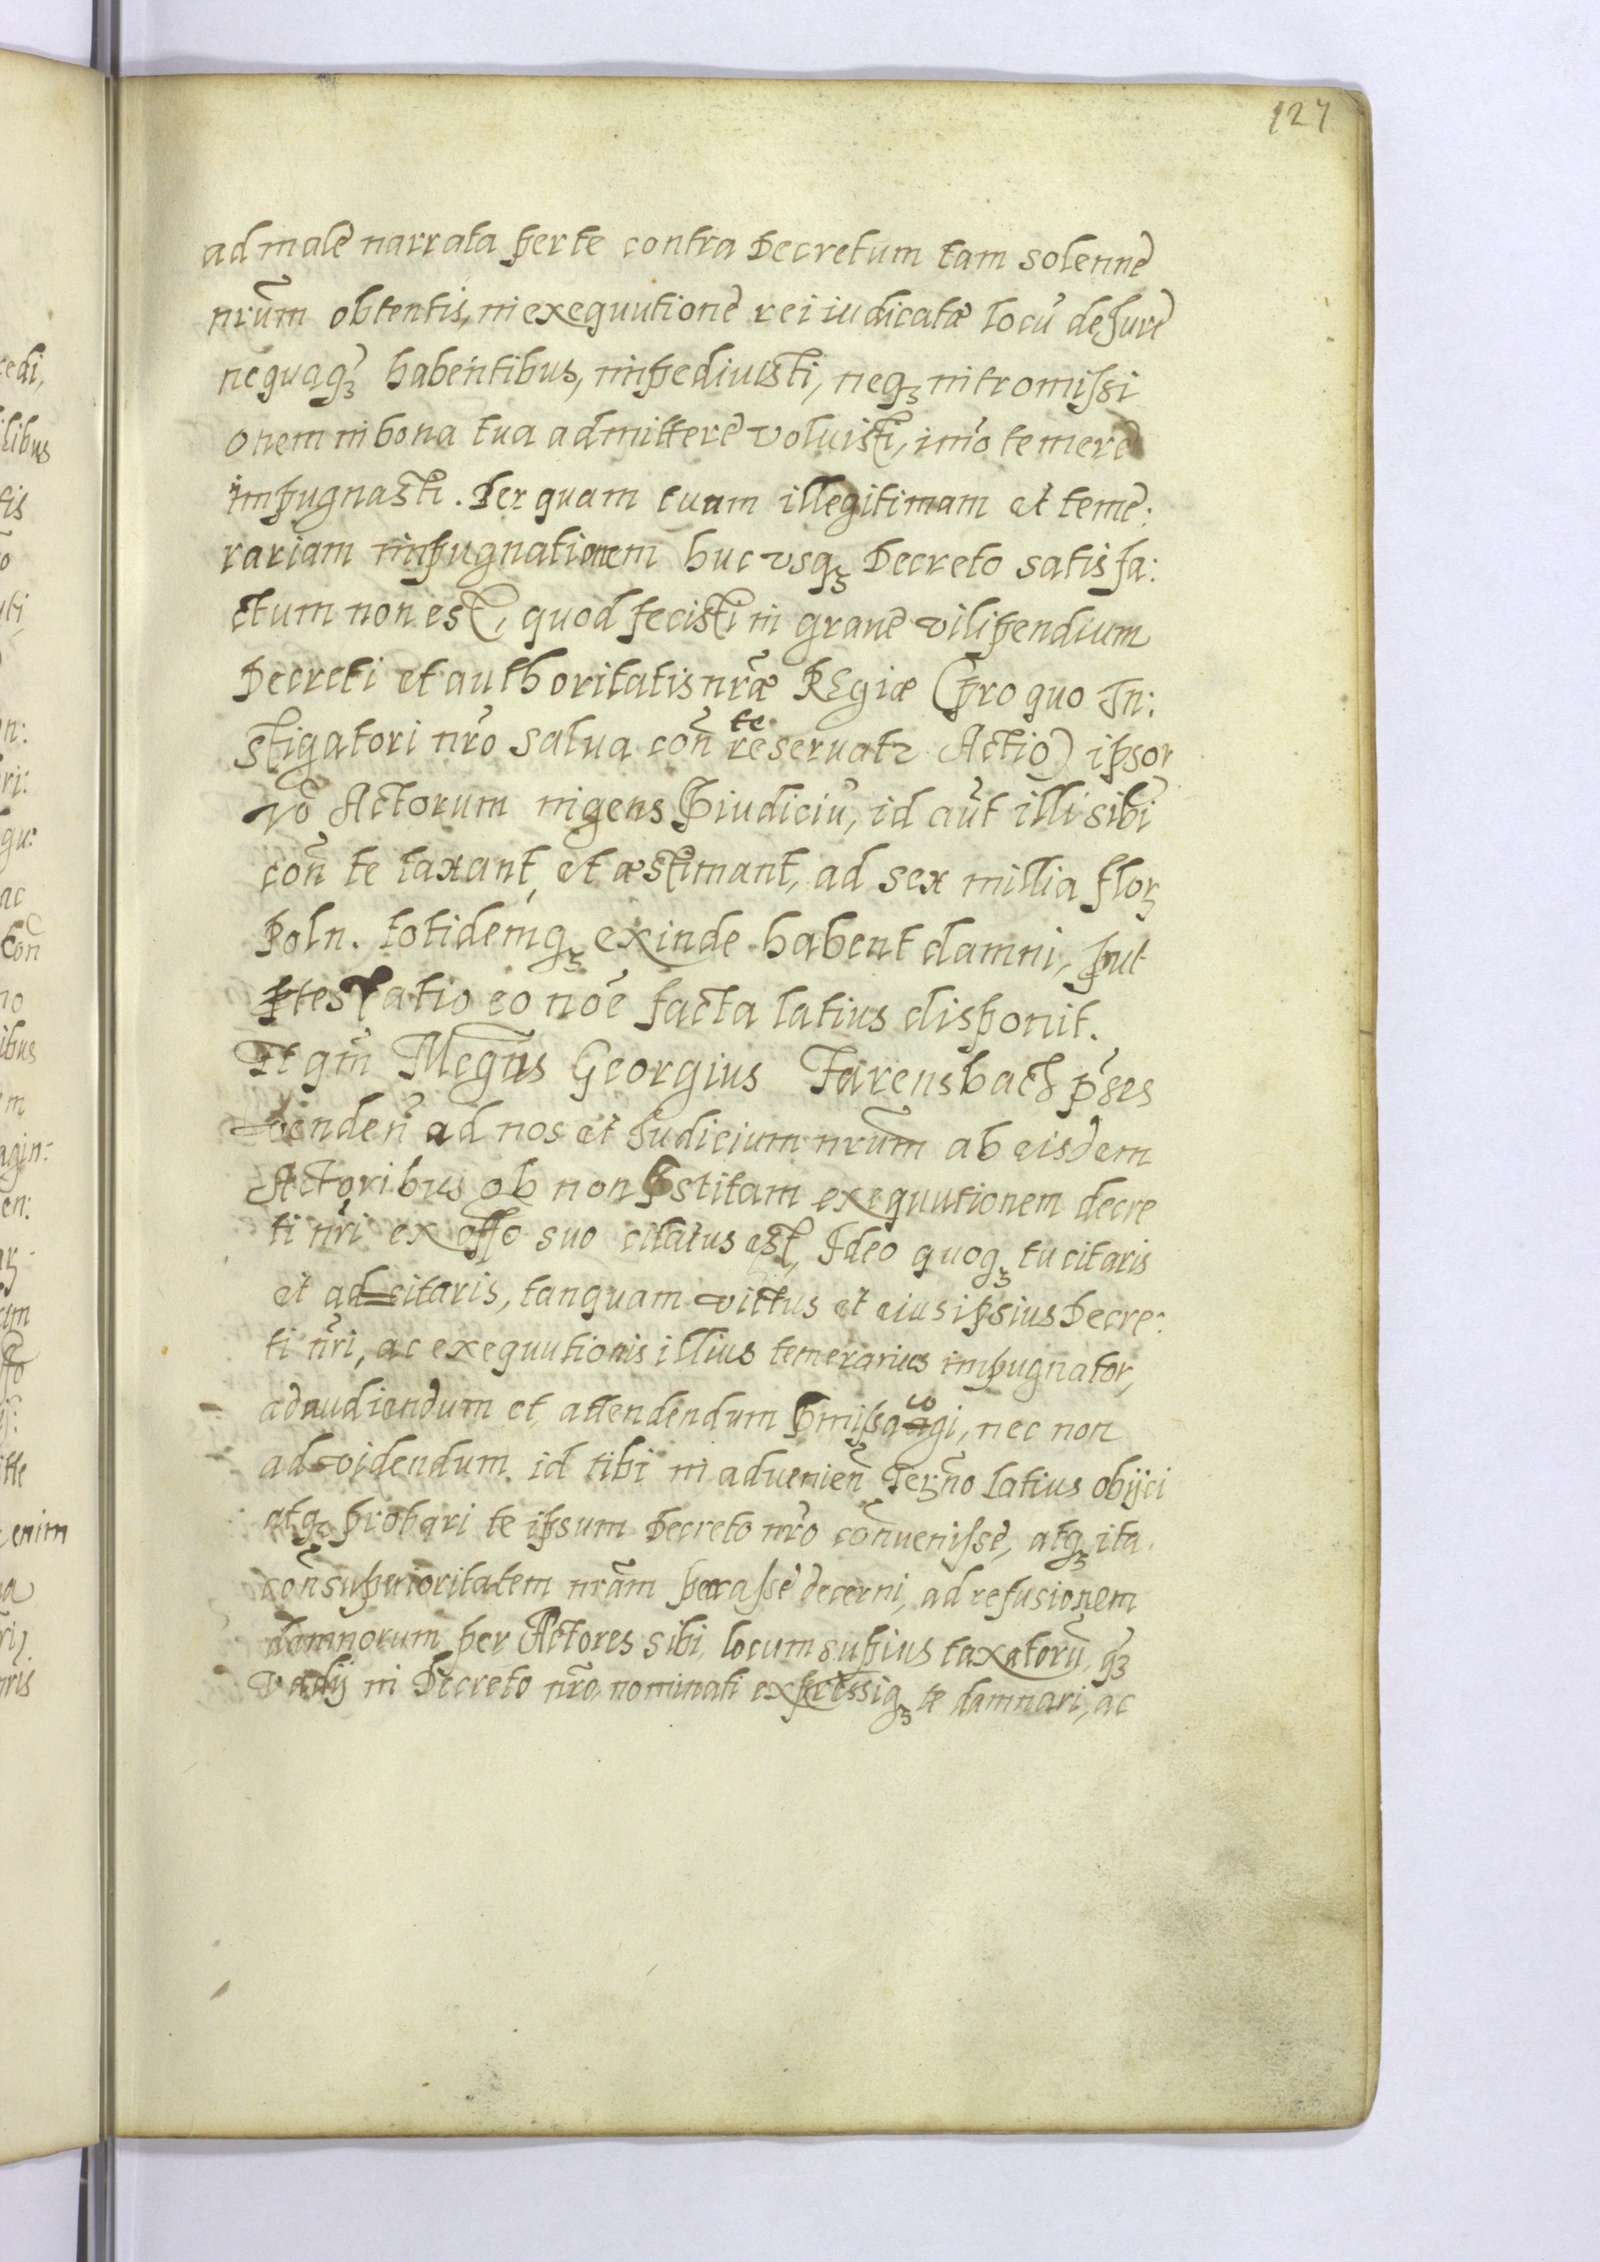 127
ad male narrata per te contra Decretum tam solenne
nrũm obtentis, in exequutione rei iudicatæ locũ de Jure
nequaqꝫ habentibus, impedivisti, neqꝫ intromissi
onem in bona tua admittere voluisti, imò temere
impugnasti. Per quam tuam illegitimam et teme:
rariam impugnationem huc vsqꝫ Decreto satisfa:
ctum non est, quod fecisti in graue vilipendium
Decreti et authoritatis nræ̃ REgiæ (pro quo In:
stigatori nrõ salua coñ te reseruatr Actio) ipsor
võ Actorum ingens p̃iudiciũ, id aũt illi sibi
coñ te taxant, et æstimant, ad sex millia florꝫ
Poln. totidemqꝫ exinde habent damni, ꝓut
ꝓtestatio eo nõe facta latius disponit.
Et qm̃ Mcgũs Georgius Farensbach p̃ses
Venden̄ ad nos et Judicium nrũm ab eisdem
Actoribus ob non p̃stitam exequutionem decre
ti nr̃i ex offo suo citatus est, Ideo quoqꝫ tu citaris
et ad=citaris, tanquam victus et eius ipsius Decre:
ti nr̃i, ac exequutionis illius temerarius impugnator,
ad audiendum et attendendum p̃missa cogi, nec non
ad videndum id tibi in advenieñ Terñno latius obijci
atqꝫ probari te ipsum Decreto nrõ convenisse, atqꝫ ita
coñ superioritatem nrãm peccasse decerni, ad refusionem
damnorum per Actores sibi locum supius taxatorũ, qꝫ
Vadij in Decreto nrõ nominati expressiqꝫ te damnari, ac